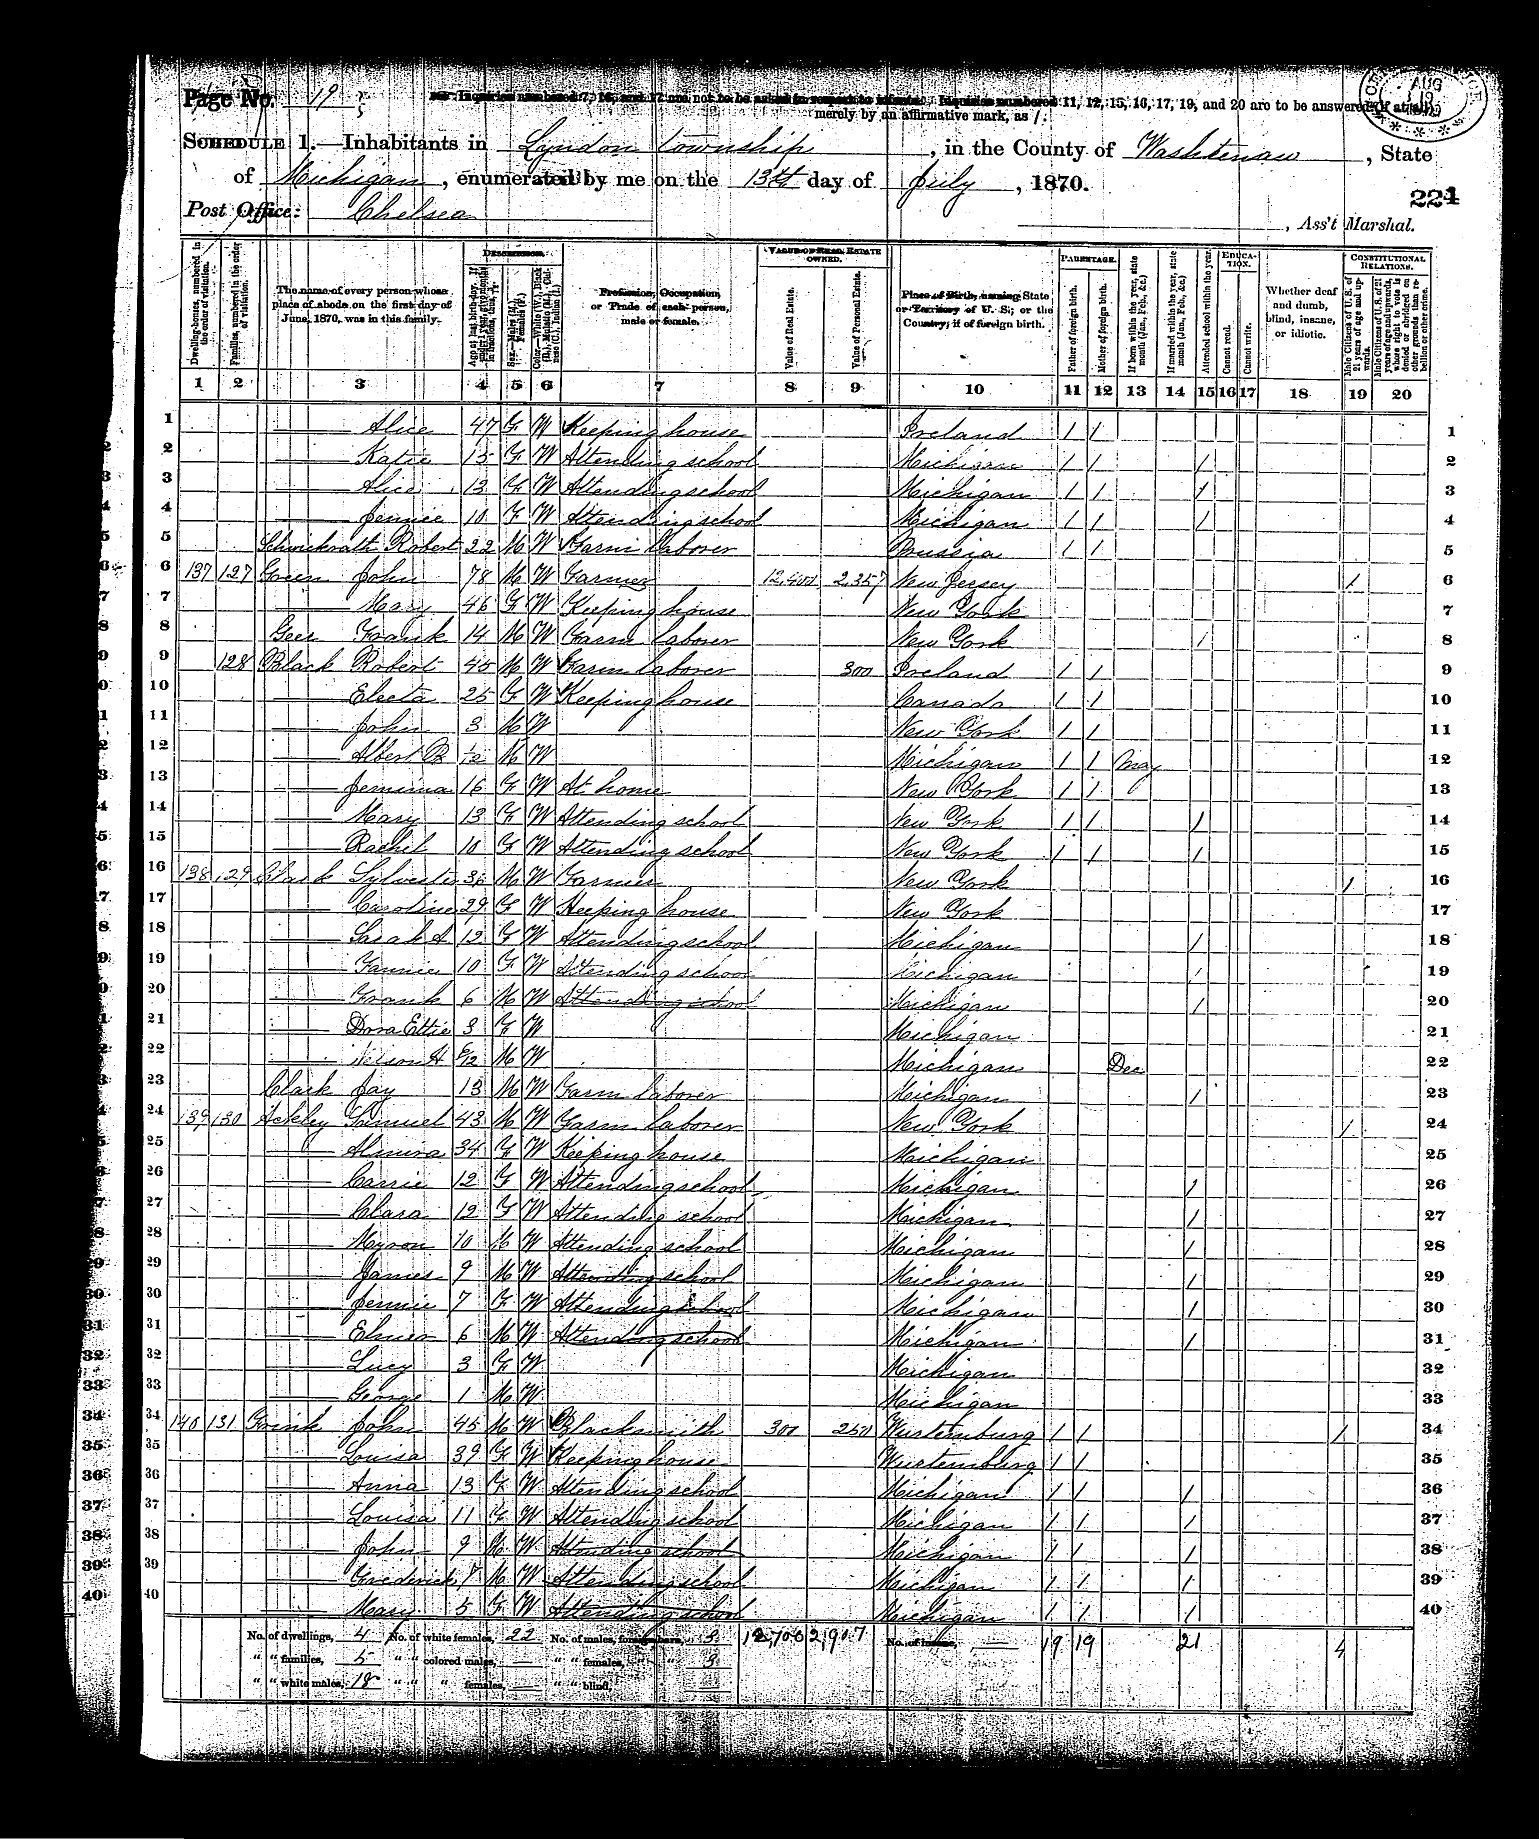 Page No. 19
11, 12, 15, 16, 17, 19, and 20 are to be answered (if at all)
merely by an affirmative mark, as /.
SCHEDULE 1.—Inhabitants in Lyndon Township, in the County of Washtenaw, State
of Michigan, enumerated by me on the 13th day of July, 1870.
224
Post Office: Chelsea
, Ass't Marshal.
DESCRIPTION. VALUE OF REAL ESTATE OWNED. PARENTAGE. EDUCATION. CONSTITUTIONAL RELATIONS.
Dwelling-houses, numbered in the order of visitation.
Families, numbered in the order of visitation.
The name of every person whose place of abode on the first day of June, 1870, was in this family.
Profession, Occupation, or Trade of each person, male or female.
Value of Real Estate.
Value of Personal Estate.
Place of Birth, naming State or Territory of U. S.; or the Country, if of foreign birth.
Father of foreign birth.
Mother of foreign birth.
If born within the year, state month (Jan., Feb., &c.)
If married within the year, state month (Jan., Feb., &c.)
Attended school within the year.
Cannot read.
Cannot write.
Whether deaf and dumb, blind, insane, or idiotic.
1 2 3 4 5 6 7 8 9 10 11 12 13 14 15 16 17 18 19 20
1 — Alice 47 F W Keeping house Ireland / / 1
2 — Katie 15 F W Attending school Michigan / / / 2
3 — Alice 13 F W Attending school Michigan / / / 3
4 — Jennie 10 F W Attending school Michigan / / / 4
5 Robert 22 M W Farm laborer Prussia / / 5
6 137 127 Green John 78 M W Farmer 12,400 2,357 New Jersey / 6
7 — Mary 46 F W Keeping house New York 7
8 Geer Frank 14 M W Farm laborer New York / 8
9 128 Black Robert 45 M W Farm laborer 300 Ireland / / 9
10 — Electa 25 F W Keeping house Canada / / 10
11 — John 3 M W New York / / 11
12 — Albert B M W Michigan / / May 12
13 — Jemima 16 F W At home New York / / 13
14 — Mary 13 F W Attending school New York / / / 14
15 — Rachel 10 F W Attending school New York / / / 15
16 138 129 Clark Sylvester 36 M W Farmer New York / 16
17 — Caroline 29 F W Keeping house New York 17
18 — Sarah A 12 F W Attending school Michigan / 18
19 — Fannie 10 F W Attending school Michigan / 19
20 — Frank 6 M W Attending school Michigan / 20
21 — Dora Ettie 3 F W Michigan 21
22 — Nelson H 6/12 M W Michigan Dec 22
23 Clark Jay 13 M W Farm laborer Michigan / 23
24 139 130 Ackley Samuel 43 M W Farm laborer New York / 24
25 — Almira 34 F W Keeping house Michigan 25
26 — Carrie 12 F W Attending school Michigan / 26
27 — Clara 12 F W Attending school Michigan / 27
28 — Myron 10 M W Attending school Michigan / 28
29 — James 9 M W Attending school Michigan / 29
30 — Jennie 7 F W Attending school Michigan / 30
31 — Elmer 6 M W Attending school Michigan / 31
32 — Lucy 3 F W Michigan 32
33 — George 1 M W Michigan 33
34 140 131 John 45 M W Blacksmith 300 250 Wurtemburg / / / 34
35 — Louisa 39 F W Keeping house Wurtemburg / / 35
36 — Anna 13 F W Attending school Michigan / / / 36
37 — Louisa 11 F W Attending school Michigan / / / 37
38 — John 9 M W Attending school Michigan / / / 38
39 — Frederick 7 M W Attending school Michigan / / / 39
40 — Mary 5 F W Attending school Michigan / / / 40
No. of dwellings, 4 No. of white females, 22 No. of males, foreign born, 3 12,700 2,907 19 19 21 4
" " families, 5 " " colored males, — " " females, " 3
" " white males, 18 " " " females, — " " blind, —